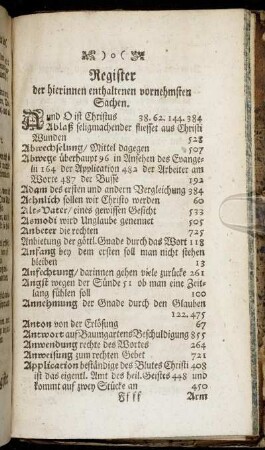 ) o (
Register
der hierinnen enthaltenen vornehmsten
Sachen.
A und O ist Christus 38. 62. 144. 384
Ablaß seligmachender fliesset aus Christi
Wunden 528
Abwechselung / Mittel dagegen 507
Abwege überhaupt 96 in Ansehen des Evange-
in 164 der Application 482 der Arbeiter am
Worte 487 der Busse 192
Adam des ersten und andern Vergleichung 384
Aehnlich sollen wir Christo werden 60
Alt-Vater / eines gewissen Gesicht 533
Amodi wird Unglaube genennet 505
Anbeter die rechten 725
Anbietung der göttl. Gnade durch das Wort 118
Anfang bey dem ersten soll man nicht stehen
bleiben 13
Anfechtung / darinnen gehen viele zurücke 261
Angst wegen der Sünde 51 ob man eine Zeit-
lang fühlen soll 100
Annehmung der Gnade durch den Glauben
122. 475
Anton von der Erlösung 67
Antwort auf Baumgartens Beschuldigung 855
Anwendung rechte des Wortes 264
Anweisung zum rechten Gebet 721
Application beständige des Blutes Christi 408
ist das eigentl. Amt des heil. Geistes 448 und
kommt auf zwey Stücke an 450
Arm